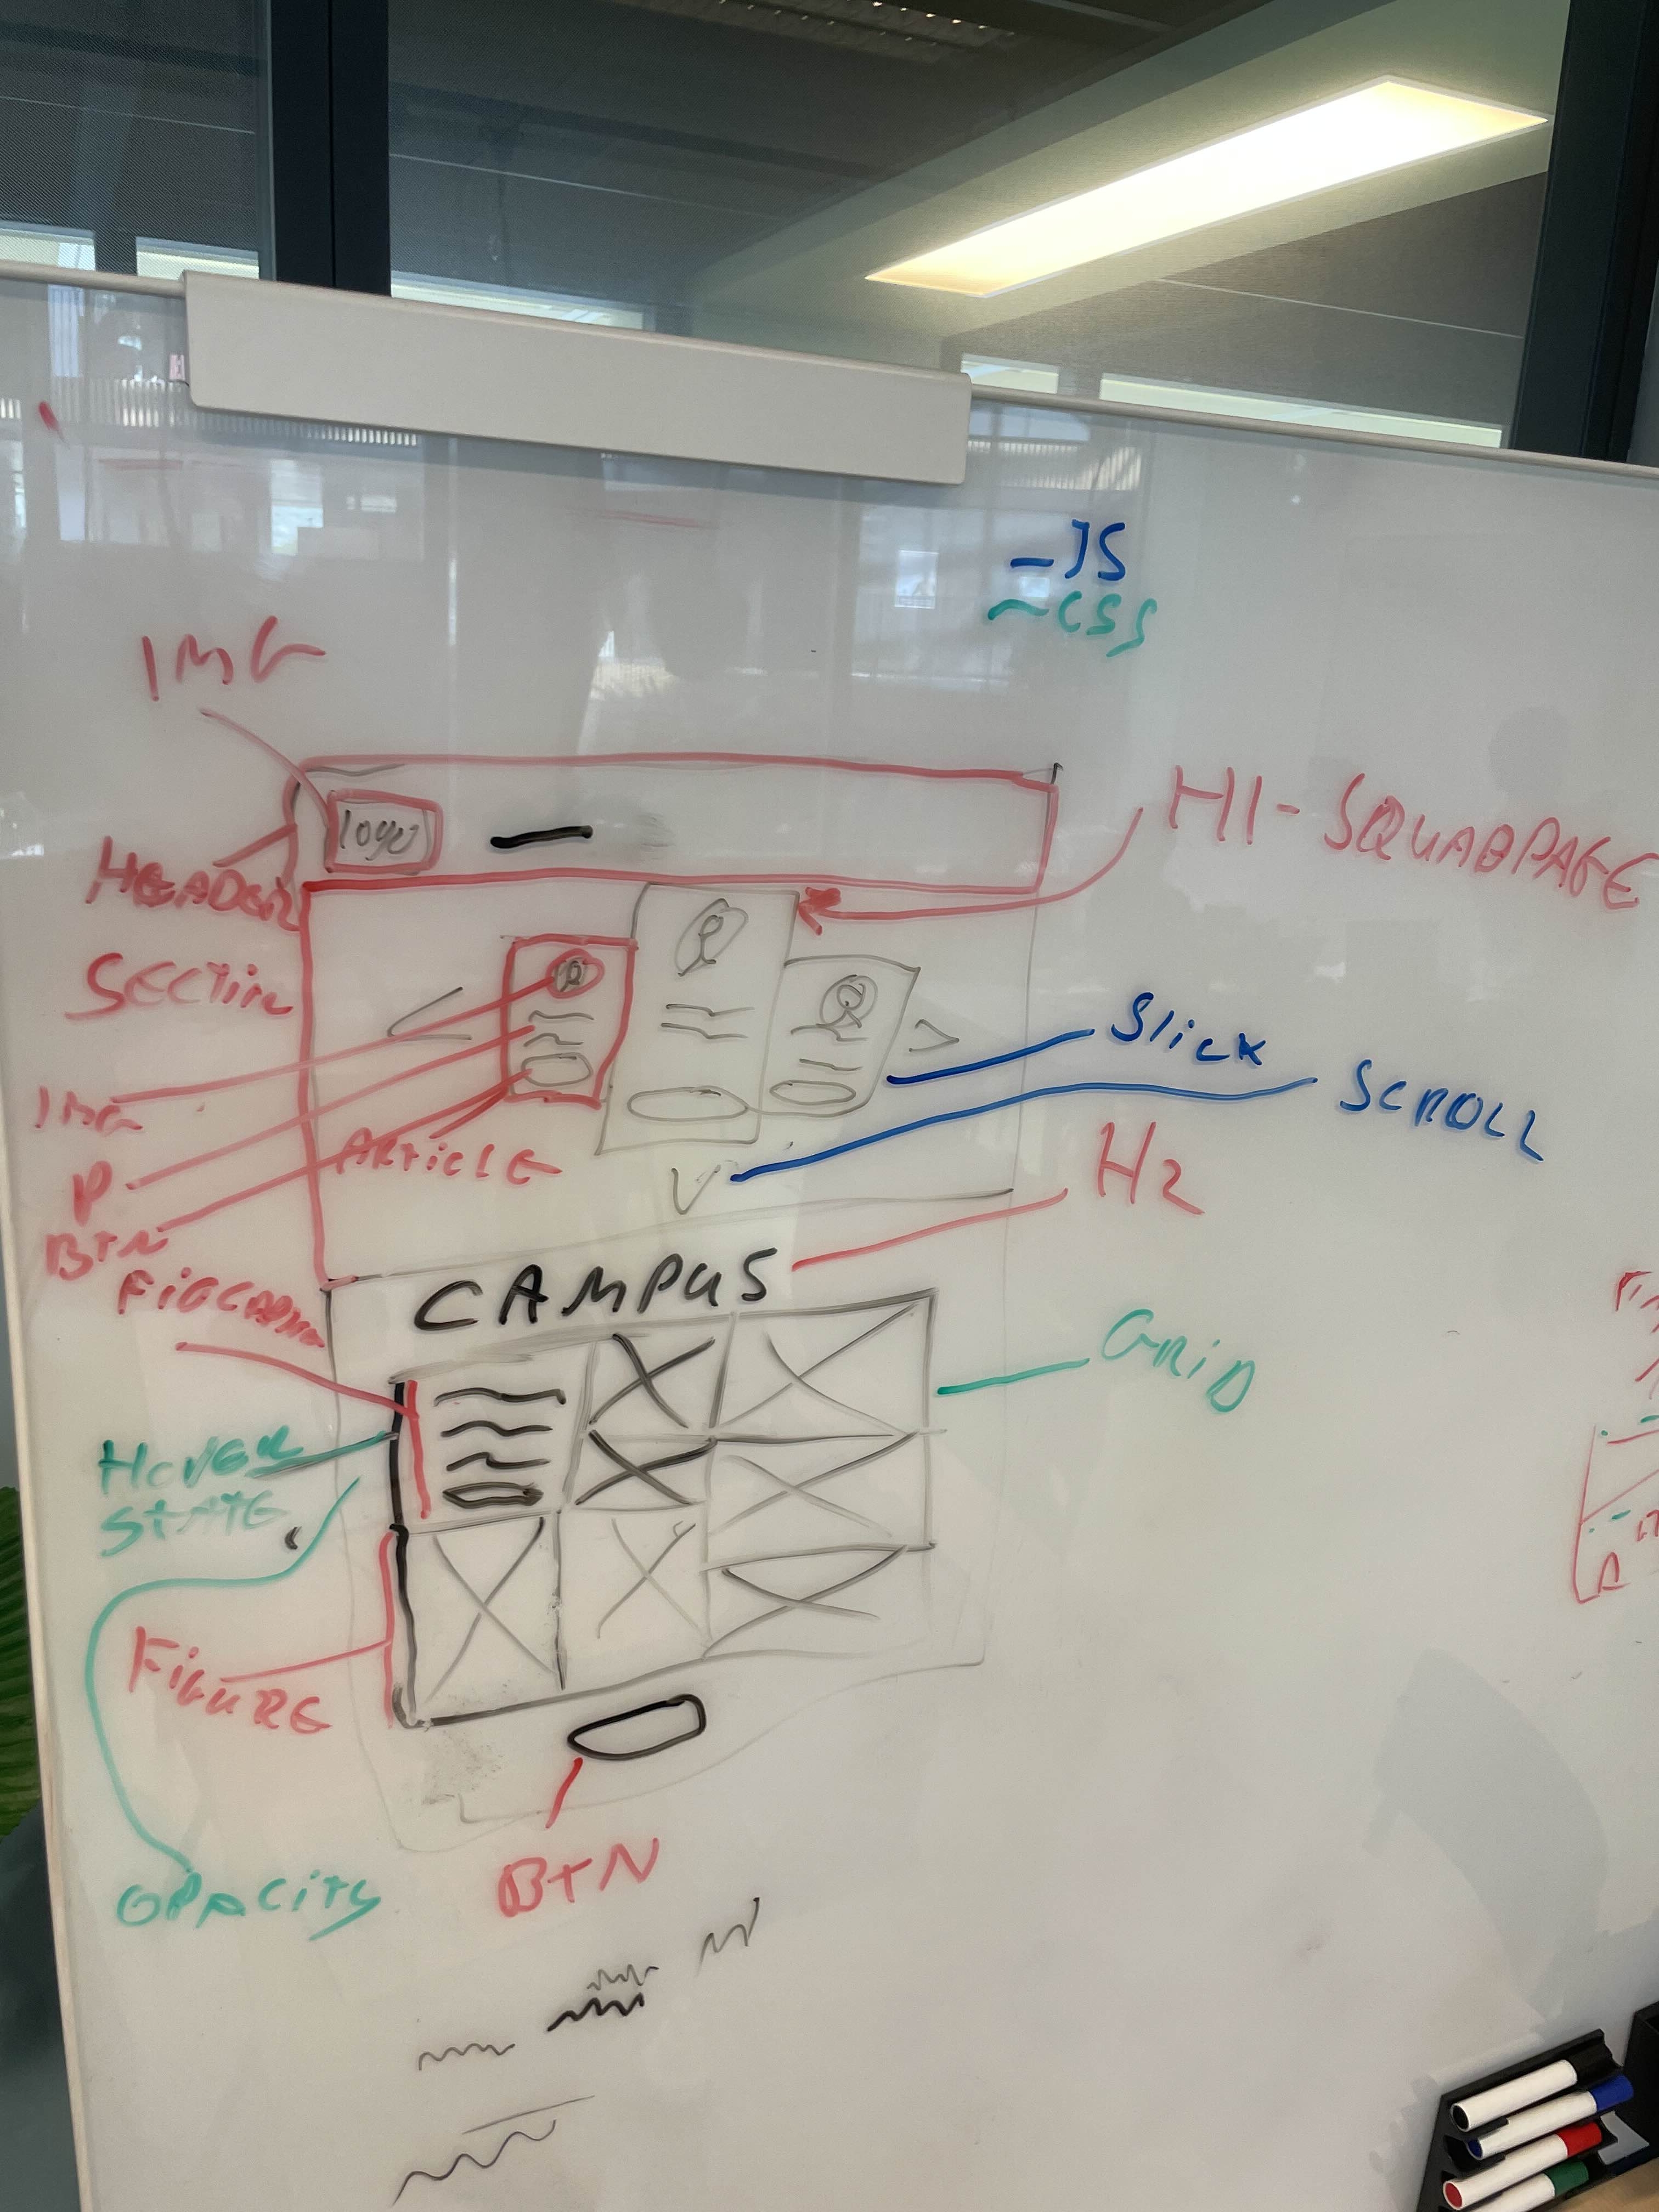 - JS
~ CSS
IMG
H1 - SQUADPAGE
logo
HEADER
SECTION
Slick
SCROLL
IMG
ARTICLE
P
H2
BTN
CAMPUS
GRID
HOVER
STATE
FIGURE
OPACITY
BTN